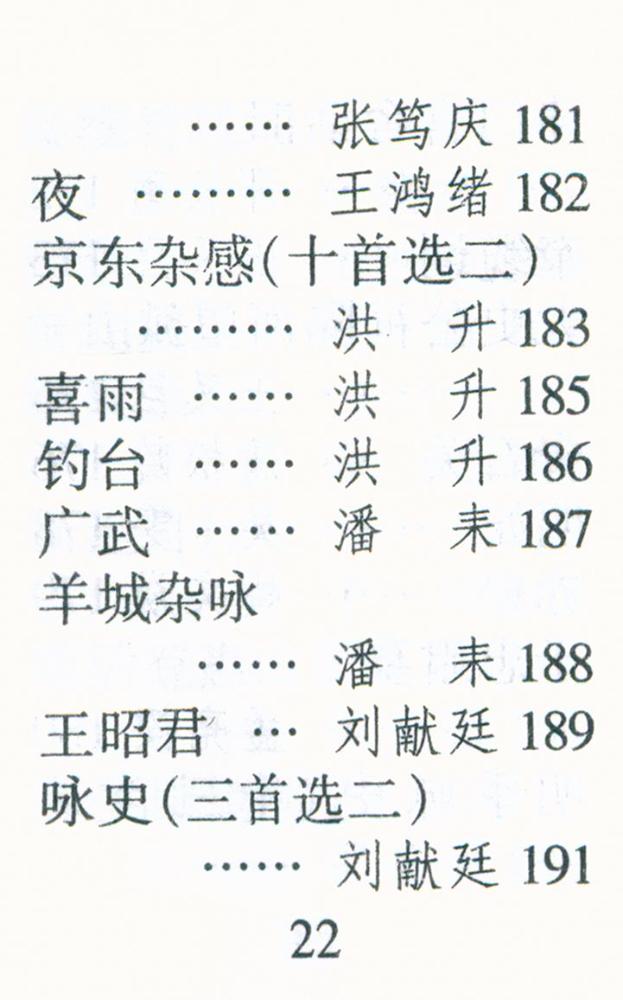 …… 张笃庆 181
夜 ……… 王鸿绪 182
京东杂感(十首选二)
……… 洪　升 183
喜雨 …… 洪　升 185
钓台 …… 洪　升 186
广武 …… 潘　耒 187
羊城杂咏
…… 潘　耒 188
王昭君 … 刘献廷 189
咏史(三首选二)
…… 刘献廷 191
22